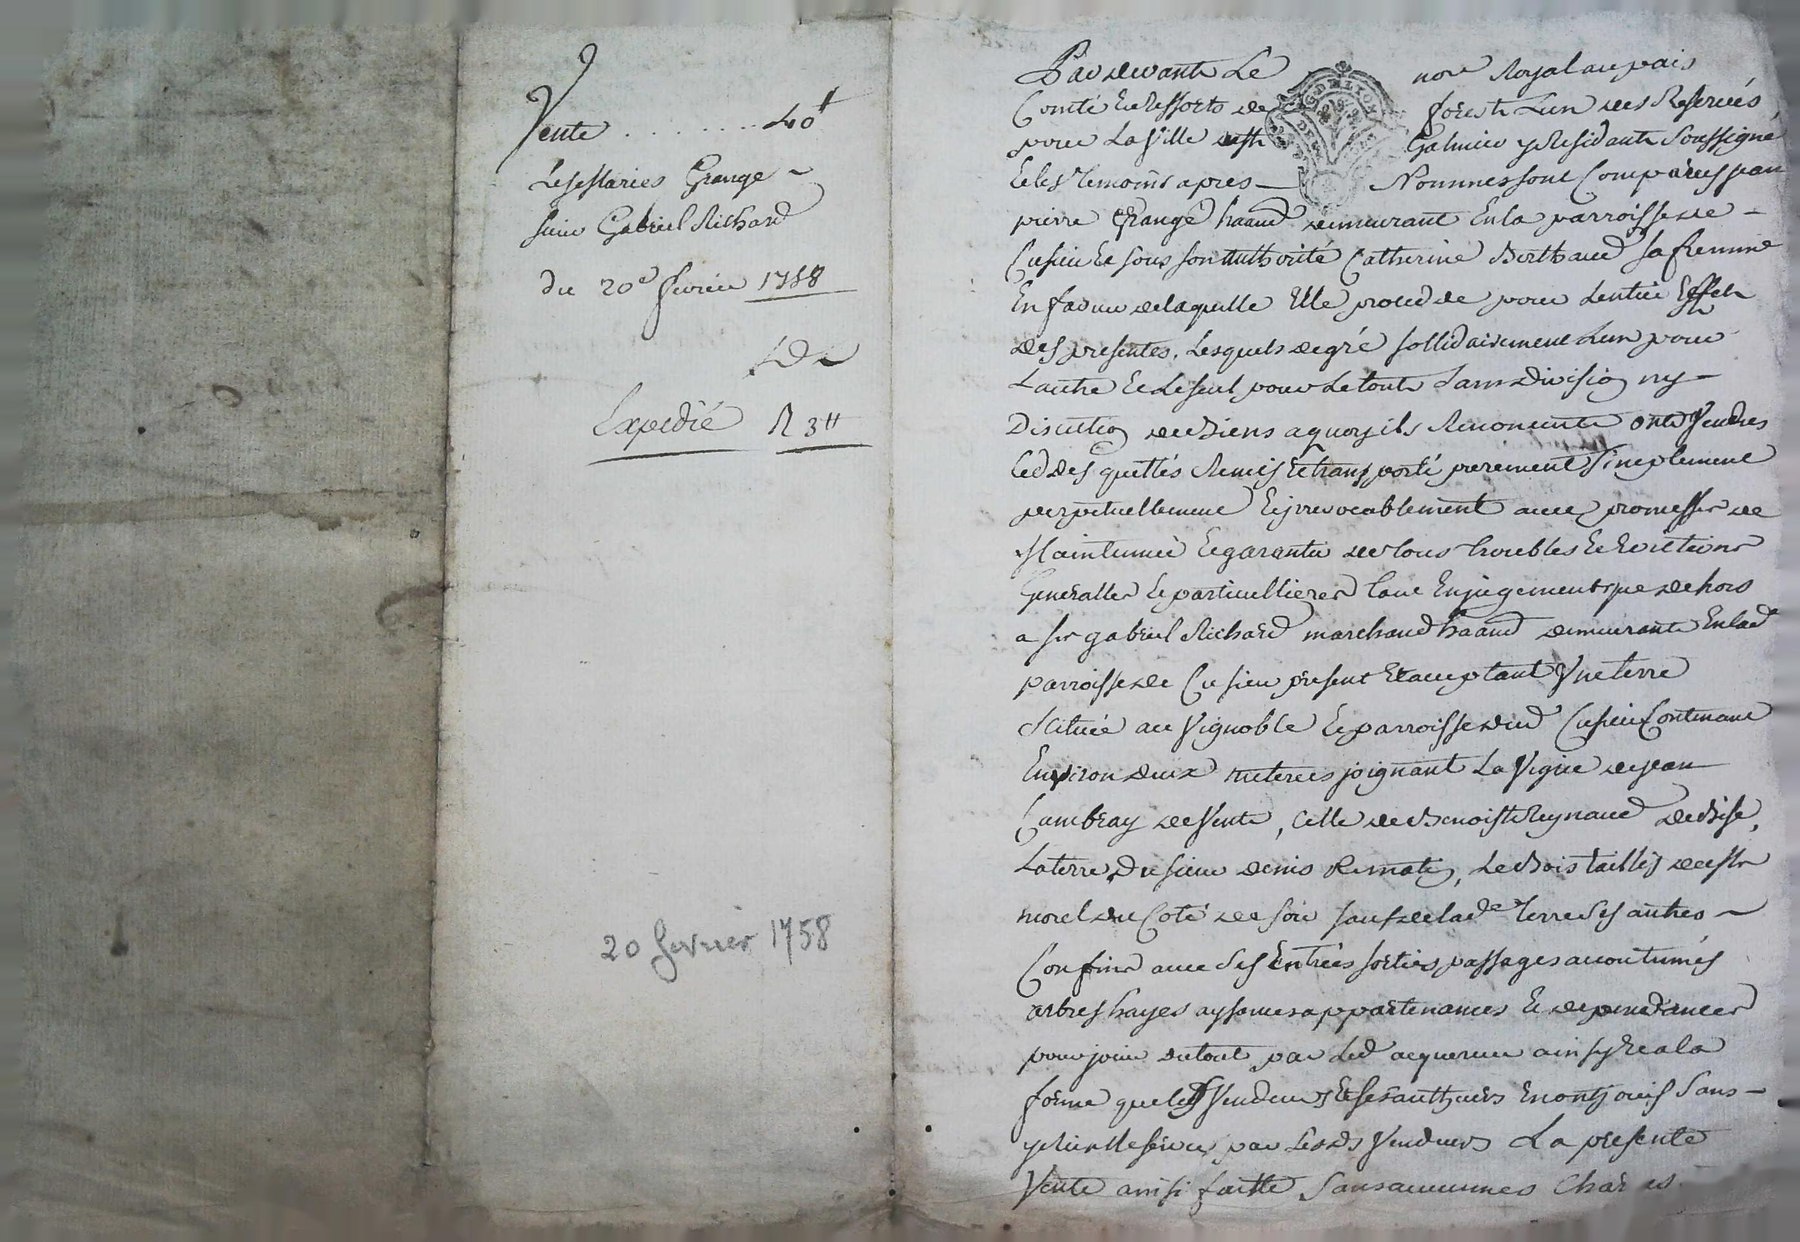 Vente ......... 40₶
Lesestaries Grange
sieur Gabriel Richard
du 20e fevrier 1758
Expedié R 3₶
20 fevrier 1758
Pardevant Le nore Royal au pais
Comté Et Ressorts de forest Lun des Reservés
pour La Ville de st Galmier y Residant Soussigné
Et les temoins apres Nommes sont Comparus jean
pierre Grange haand demeurant En la parroisse de
Cusieu Et sous son Authorité Catherine Berthaud sa femme
En faveur de laquelle Elle procedde pour Lentier Effet
des presentes, Lesquels de gré sollidairement Lun pour
Lautre Et Le seul pour Le tout Sans Division ny
Discution de Biens a quoy ils Renoncent ont Vendus
Ced des quittés Remis Et transporté purement Simplement
perpetuellement Et jrrevocablement avec promesse de
Maintenue Et garantie de tous troubles Et Evictions
Generalles Et particullieres tant En jugement que dehors
a sr gabriel Richard marchand haand demeurant En lad
parroisse de Cusieu present Et acceptant Une terre
Scituée au Vignoble Et parroisse dud Cusieu Contenant
Environ deux meterées joignant La Vigne de jean
Cambray de Vente, Celle de Benoist Reynaud de Bise,
La terre du sieur denis Rematz, Le Bois taillis de str
morel du Coté de soir sauf de lade terre Ses autres
Confins avec Ses Entrées sorties passages accoutumés
arbres hayes aysances appartenances Et dependances
pour jouir du tout par Led acquereur ainsy Et a la
forme que lesd Vendeurs Et ses autheurs En ont joui Sans
y Rien Reserver par Lesds Vendeurs La presente
Vente ainsi faitte Sans aucunnes Charges